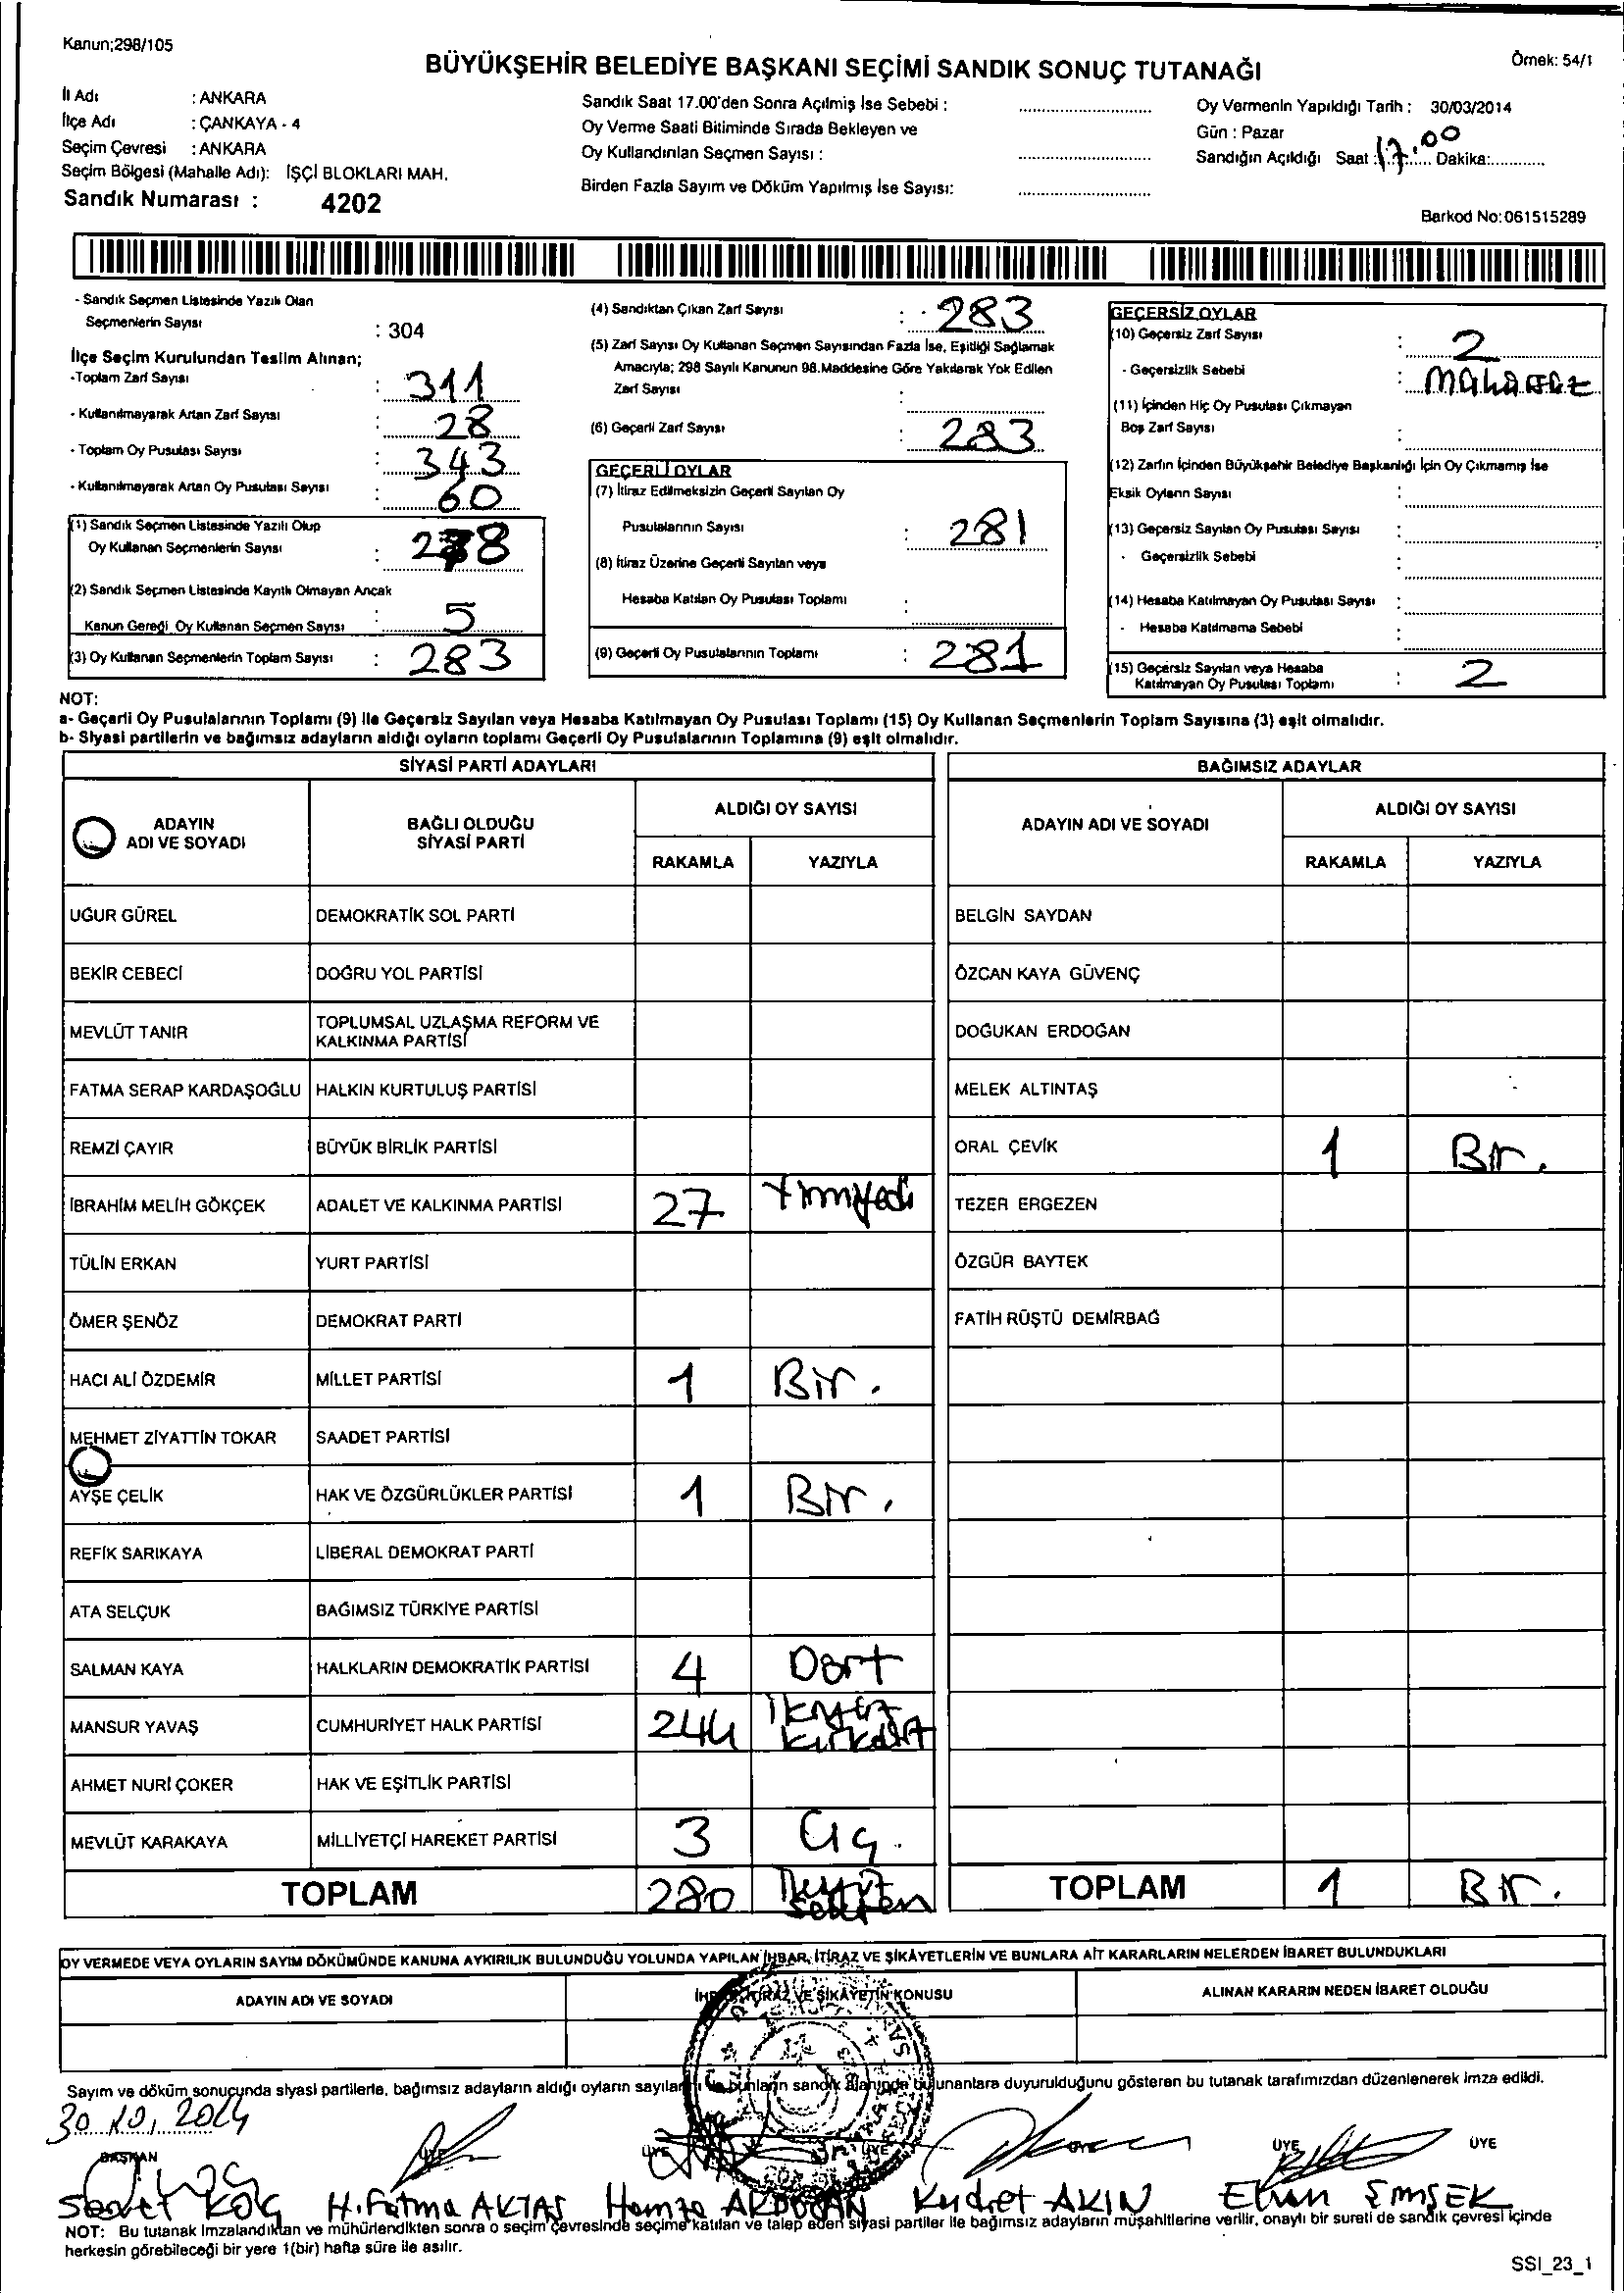 Kanun;298/105
BÜYÜKŞEHİR BELEDİYE BAŞKANI SEÇİMİ SANDIK SONUÇ TUTANAĞI
Örnek: 54/1
İl Adı : ANKARA
İlçe Adı : ÇANKAYA - 4
Seçim Çevresi : ANKARA
Seçim Bölgesi (Mahalle Adı): İŞÇİ BLOKLARI MAH.
Sandık Numarası : 4202
Sandık Saat 17.00'den Sonra Açılmış İse Sebebi :
Oy Verme Saati Bitiminde Sırada Bekleyen ve
Oy Kullandırılan Seçmen Sayısı :
Birden Fazla Sayım ve Döküm Yapılmış İse Sayısı:
Oy Vermenin Yapıldığı Tarih : 30/03/2014
Gün : Pazar
Sandığın Açıldığı Saat : 17.00 Dakika:
Barkod No:061515289
- Sandık Seçmen Listesinde Yazılı Olan
Seçmenlerin Sayısı : 304
İlçe Seçim Kurulundan Teslim Alınan;
-Toplam Zarf Sayısı : 311
- Kullanılmayarak Artan Zarf Sayısı : 28
- Toplam Oy Pusulası Sayısı : 343
- Kullanılmayarak Artan Oy Pusulası Sayısı : 60
(1) Sandık Seçmen Listesinde Yazılı Olup
Oy Kullanan Seçmenlerin Sayısı : 278
(2) Sandık Seçmen Listesinde Kayıtlı Olmayan Ancak
Kanun Gereği Oy Kullanan Seçmen Sayısı : 5
(3) Oy Kullanan Seçmenlerin Toplam Sayısı : 283
(4) Sandıktan Çıkan Zarf Sayısı : 283
(5) Zarf Sayısı Oy Kullanan Seçmen Sayısından Fazla İse, Eşitliği Sağlamak
Amacıyla; 298 Sayılı Kanunun 98.Maddesine Göre Yakılarak Yok Edilen
Zarf Sayısı :
(6) Geçerli Zarf Sayısı : 283
GEÇERLİ OYLAR
(7) İtiraz Edilmeksizin Geçerli Sayılan Oy
Pusulalarının Sayısı : 281
(8) İtiraz Üzerine Geçerli Sayılan veya
Hesaba Katılan Oy Pusulası Toplamı :
(9) Geçerli Oy Pusulalarının Toplamı : 281
GEÇERSİZ OYLAR
(10) Geçersiz Zarf Sayısı : 2
- Geçersizlik Sebebi :
(11) İçinden Hiç Oy Pusulası Çıkmayan
Boş Zarf Sayısı :
(12) Zarfın İçinden Büyükşehir Belediye Başkanlığı İçin Oy Çıkmamış İse
Eksik Oyların Sayısı :
(13) Geçersiz Sayılan Oy Pusulası Sayısı :
- Geçersizlik Sebebi :
(14) Hesaba Katılmayan Oy Pusulası Sayısı :
- Hesaba Katılmama Sebebi :
(15) Geçersiz Sayılan veya Hesaba
Katılmayan Oy Pusulası Toplamı : 2
NOT:
a- Geçerli Oy Pusulalarının Toplamı (9) ile Geçersiz Sayılan veya Hesaba Katılmayan Oy Pusulası Toplamı (15) Oy Kullanan Seçmenlerin Toplam Sayısına (3) eşit olmalıdır.
b- Siyasi partilerin ve bağımsız adayların aldığı oyların toplamı Geçerli Oy Pusulalarının Toplamına (9) eşit olmalıdır.
SİYASİ PARTİ ADAYLARI
ADAYIN ADI VE SOYADI
BAĞLI OLDUĞU SİYASİ PARTİ
ALDIĞI OY SAYISI
RAKAMLA YAZIYLA
UĞUR GÜREL DEMOKRATİK SOL PARTİ
BEKİR CEBECİ DOĞRU YOL PARTİSİ
MEVLÜT TANIR TOPLUMSAL UZLAŞMA REFORM VE KALKINMA PARTİSİ
FATMA SERAP KARDAŞOĞLU HALKIN KURTULUŞ PARTİSİ
REMZİ ÇAYIR BÜYÜK BİRLİK PARTİSİ
İBRAHİM MELİH GÖKÇEK ADALET VE KALKINMA PARTİSİ 27 Yirmiyedi
TÜLİN ERKAN YURT PARTİSİ
ÖMER ŞENÖZ DEMOKRAT PARTİ
HACI ALİ ÖZDEMİR MİLLET PARTİSİ 1 Bir.
MEHMET ZİYATTİN TOKAR SAADET PARTİSİ
AYŞE ÇELİK HAK VE ÖZGÜRLÜKLER PARTİSİ 1 Bir.
REFİK SARIKAYA LİBERAL DEMOKRAT PARTİ
ATA SELÇUK BAĞIMSIZ TÜRKİYE PARTİSİ
SALMAN KAYA HALKLARIN DEMOKRATİK PARTİSİ 4 Dört
MANSUR YAVAŞ CUMHURİYET HALK PARTİSİ 244 İkiyüz kırkdört
AHMET NURİ ÇOKER HAK VE EŞİTLİK PARTİSİ
MEVLÜT KARAKAYA MİLLİYETÇİ HAREKET PARTİSİ 3 Üç.
TOPLAM 280 İkiyüz seksen
BAĞIMSIZ ADAYLAR
ADAYIN ADI VE SOYADI
ALDIĞI OY SAYISI
RAKAMLA YAZIYLA
BELGİN SAYDAN
ÖZCAN KAYA GÜVENÇ
DOĞUKAN ERDOĞAN
MELEK ALTINTAŞ
ORAL ÇEVİK 1 Bir.
TEZER ERGEZEN
ÖZGÜR BAYTEK
FATİH RÜŞTÜ DEMİRBAĞ
TOPLAM 1 Bir.
OY VERMEDE VEYA OYLARIN SAYIM DÖKÜMÜNDE KANUNA AYKIRILIK BULUNDUĞU YOLUNDA YAPILAN İHBAR, İTİRAZ VE ŞİKÂYETLERİN VE BUNLARA AİT KARARLARIN NELERDEN İBARET BULUNDUKLARI
ADAYIN ADI VE SOYADI
İHBAR, İTİRAZ VE ŞİKAYETİN KONUSU
ALINAN KARARIN NEDEN İBARET OLDUĞU
Sayım ve döküm sonucunda siyasi partilerle, bağımsız adayların aldığı oyların sayılarını ve bunların sandık alanında bulunanlara duyurulduğunu gösteren bu tutanak tarafımızdan düzenlenerek imza edildi.
30.10.2014
BAŞKAN ÜYE ÜYE ÜYE ÜYE ÜYE
Sedat KOÇ H.Fatma AKTAŞ Hamza AKDOĞAN Kudret AKIN Elvan ŞİMŞEK
NOT: Bu tutanak imzalandıktan ve mühürlendikten sonra o seçim çevresinde seçime katılan ve talep eden siyasi partiler ile bağımsız adayların müşahitlerine verilir, onaylı bir sureti de sandık çevresi içinde
herkesin görebileceği bir yere 1(bir) hafta süre ile asılır.
SSI_23_1